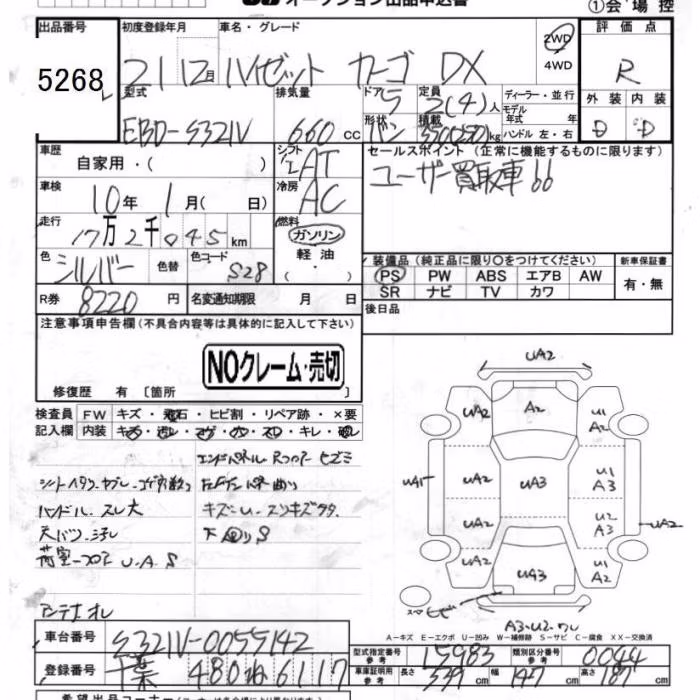 オークション出品申込書
①会場控
出品番号 初度登録年月 車名・グレード 2WD 4WD 評価点
5268 21 12月 ハイゼット カーゴ DX R
型式 排気量 ドア 定員 ディーラー・並行 外装 内装
EBD-S321V 660cc 5 2(4)人 モデル年式 年 D D
形状 バン 積載 350(250)kg ハンドル 左・右
車歴 シフト セールスポイント(正常に機能するものに限ります)
自家用・( ) AT ユーザー買取車!!
車検 冷房
10年 1月( 日) AC
走行 燃料
17万2千045km ガソリン 軽油 ・( )
色 色替 色コード 装備品(純正品に限り○をつけてください) 新車保証書
シルバー S28 PS PW ABS エアB AW 有・無
SR ナビ TV カワ
R券 8220円 名変通知期限 月 日 後日品
注意事項申告欄(不具合内容等は具体的に記入して下さい)
NOクレーム・売切
修復歴 有 〔箇所 〕
検査員 FW キズ・飛石・ヒビ割・リペア跡・×要
記入欄 内装
エンドパネル Rフロア ヒズミ
ハンドル スレ大
キズ・U・スリキズ
下回りS
荷室フロア U.A.S
アンテナオレ
UA2
UA2 A2 U1 A2
UA1 UA2 UA3 U1 A3
UA2 U2 A3 UA2
UA2 UA3 U1 A2
A3・U2・ワレ
A-キズ E-エクボ U-凹み W-補修跡 S-サビ C-腐食 XX-交換済
車台番号 S321V-0055142
型式指定番号 参考 15983 類別区分番号 参考 0044
登録番号 千葉 480 ね 6117
車庫証明用 参考 長さ 339cm 幅 147cm 高さ 187cm